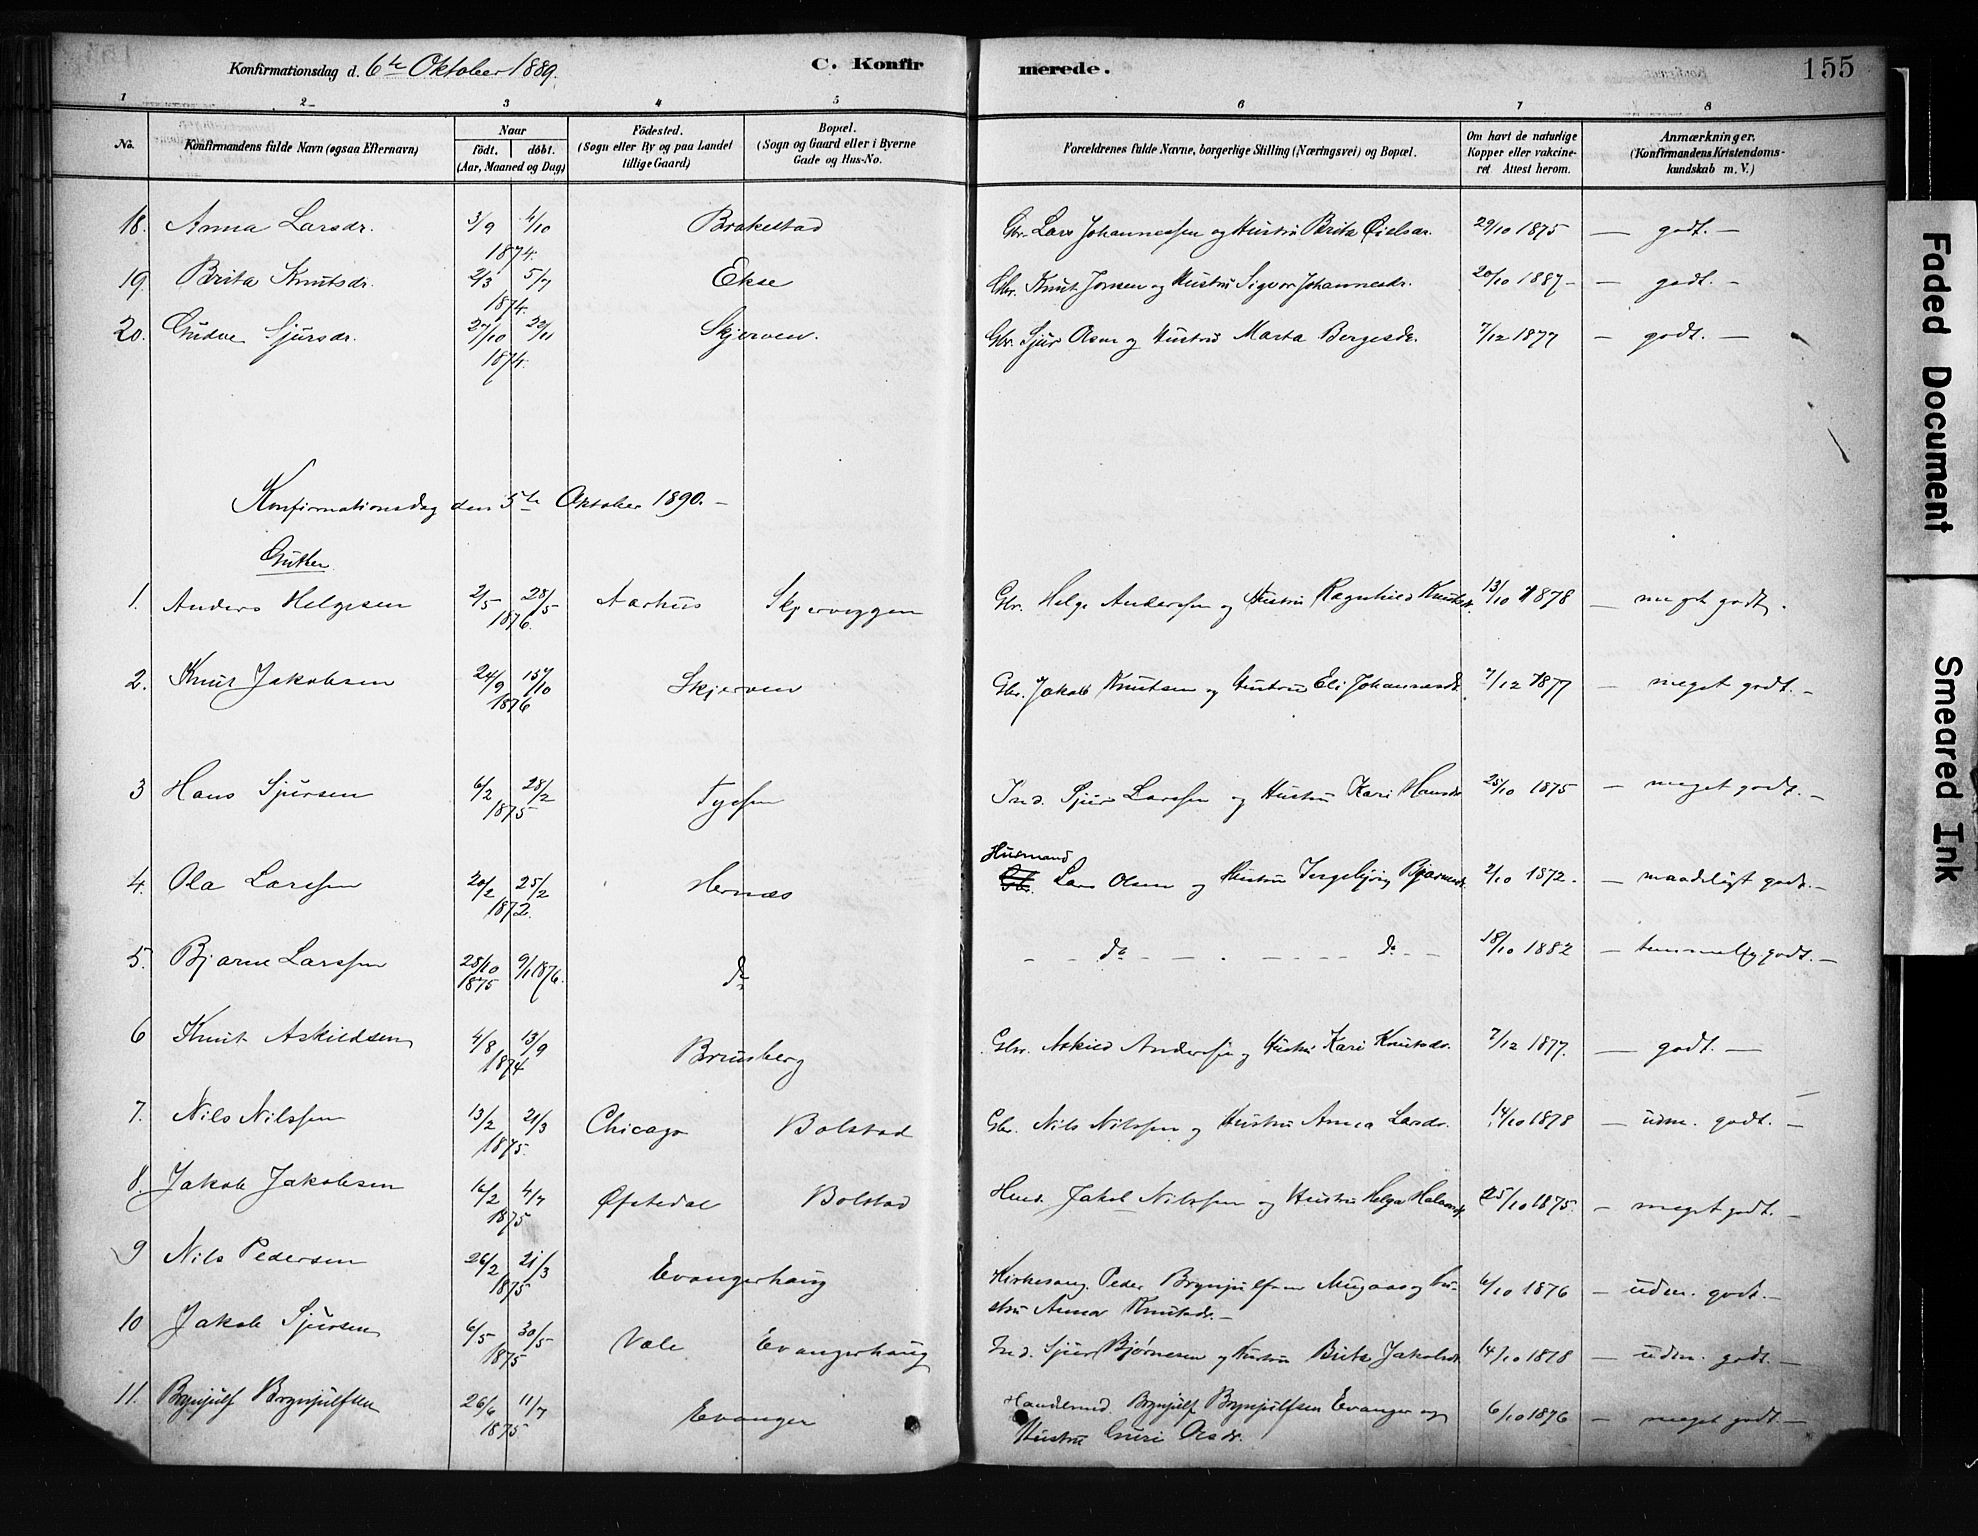 Konfirmationsdag d. 6te Oktober 1889. C. Konfirmerede. 155
1 2 3 4 5 6 7 8
No. Konfirmandens fulde Navn (ogsaa Efternavn) Naar født. døbt. (Aar, Maaned og Dag) Fødested. (Sogn eller By og paa Landet tillige Gaard) Bopæl. (Sogn og Gaard eller i Byerne Gade og Hus-No. Forældrenes fulde Navne, borgerlige Stilling (Næringsvei) og Bopæl. Om havt de naturlige Kopper eller vakcineret Attest herom. Anmærkninger. (Konfirmandens Kristendomskundskab m. V.)
18. Anna Larsdr. 3/9 4/10 1874. Brakestad Gbr. Lars Johannessen og Hustru Brita 29/10 1875 — godt. —
19. Brita Knutsdr. 2/3 5/7 1874. Ekse Gbr. Knut Jonsen og Hustru Sigvor Johannesdr. 20/10 1887 — godt. —
20. Gudve Sjursdr. 27/10 22/11 1874. Skjerven. Gbr. Sjur Olsen og Hustru Marta Bergesdr. 7/12 1877 — godt. —
Konfirmationsdag den 5te Oktober 1890. —
Gutter
1. Anders Helgesen 2/5 28/5 1876. Aarhus Skjerveggen Gbr. Helge Anderssen og Hustru Ragnhild Knutsdr. 13/10 1878 — meget godt.
2. Knut Jakobsen 24/9 15/10 1876 Skjerven Gbr. Jakob Knutsen og Hustru Eli Johannesdr. 7/12 1877 — meget godt. —
3 Hans Sjursen 6/2 28/2 1875 Ind. Sjur Larssen og Hustru Kari Hansdr 25/10 1875 — meget godt. —
Husmand
4. Ola Larssen 20/2 25/2 1872. Hernæs Gbr. Lars Olsen og Hustru Ingebjørg Bjarnesdr. 2/10 1872. — maadeligt godt. —
5. Bjarne Larssen 28/10 1875 9/1 1876. do do do 18/10 1882 — temmelig godt. —
6 Knut Askildsen 4/8 13/9 1874 Brunsberg Gbr. Askild Anderssen og Hustru Kari Knutsdr. 7/12 1877. — godt. —
7. Nils Nilssen 13/2 21/3 1875. Chicago Bolstad Gbr. Nils Nilssen og Hustru Anna Larsdr. 14/10 1878 — udm. godt. —
8. Jakob Jakobsen 16/2 4/7 1875 Øfstedal Bolstad Husd. Jakob Nilssen og Hustru Helga 25/10 1875. — meget godt. —
9 Nils Pedersen 26/2 21/3 1875 Evangerhaug Kirkesang. Peder Brynjulfsen Mugaas og Hu- 6/10 1876 — udm. godt. —
stru Anna Knutsdr. —
10 Jakob Sjursen 6/5 30/5 1875 Væle Evangerhaug Ind. Sjur Bjørnesen og Hustru Brita Jakobsdr 14/10 1878 — udm. godt. —
11. Brynjulf Brynjulfsen 26/6 11/7 1875 Evanger Handelsmd. Brynjulf Brynjulfsen Evanger og 6/10 1876 — meget godt. —
Hustru Guri Olsdr.
Faded Document
Smeared Ink